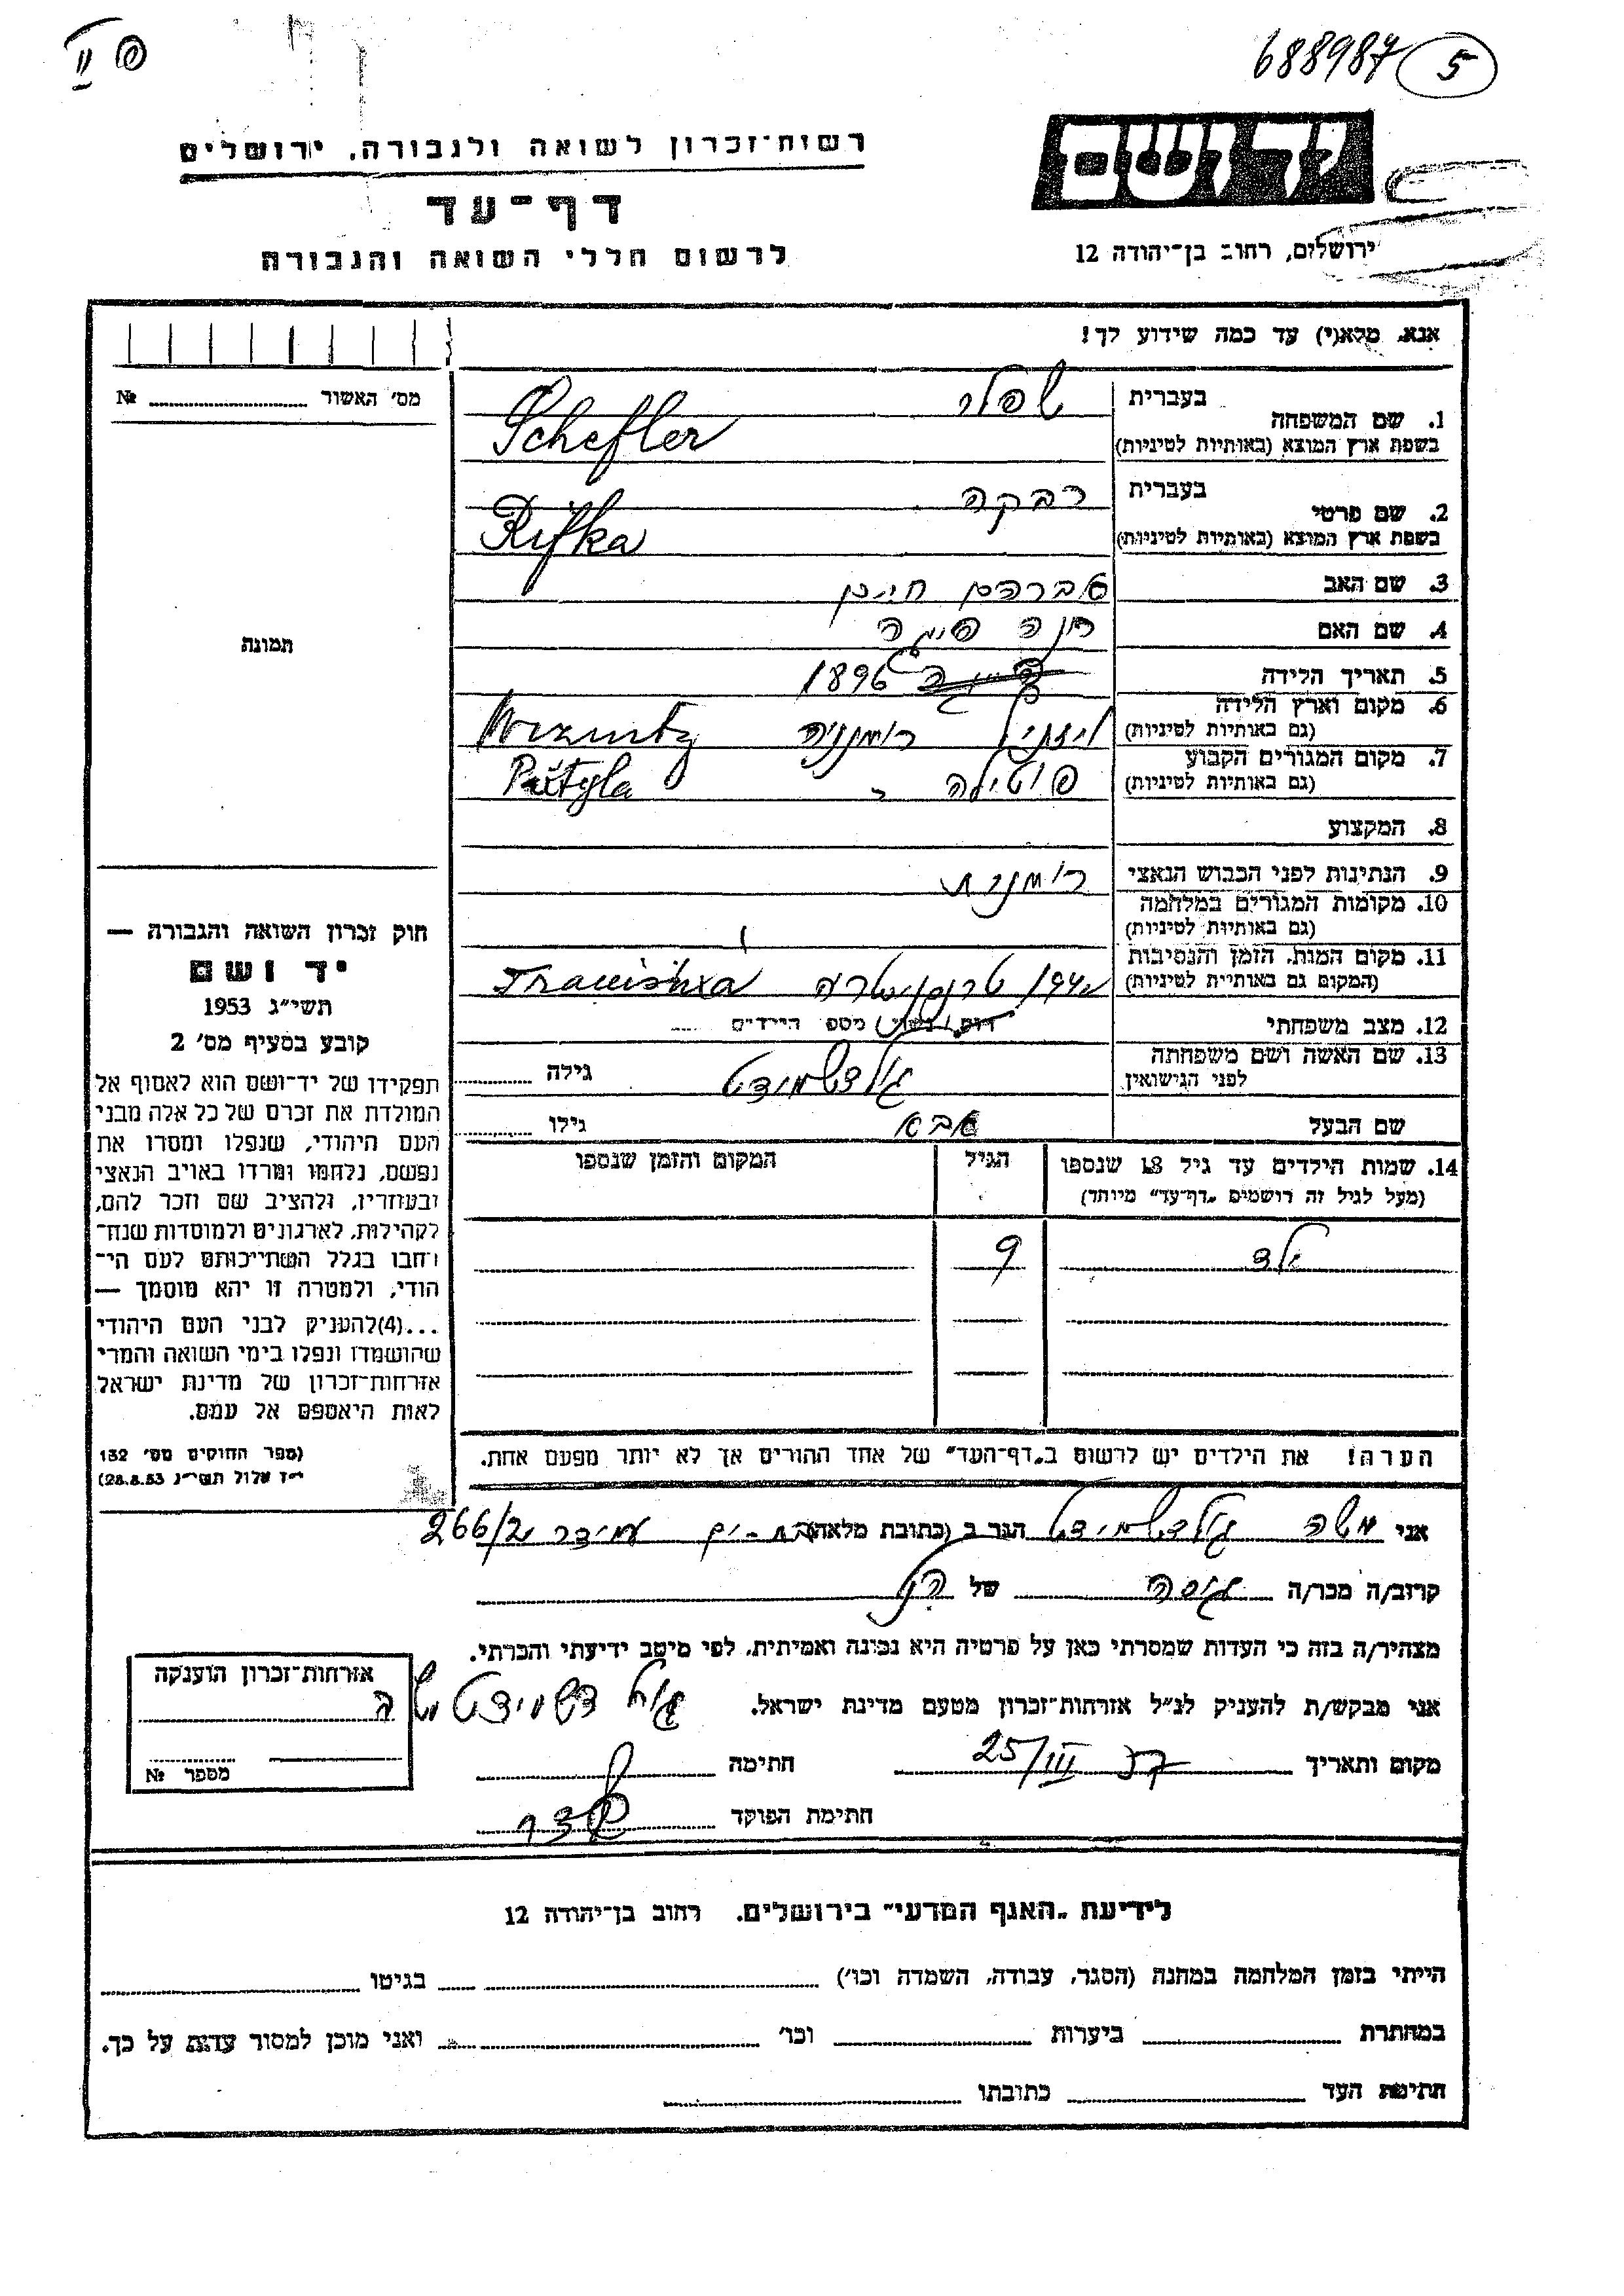 688987 5
רשות־זכרון לשואה ולגבורה, ירושלים
דף־עד
לרשום חללי השואה והגבורה
יד ושם
ירושלים, רחוב בן־יהודה 12
אנא, מלא(י) עד כמה שידוע לך!
1. שם המשפחה
בעברית שפלר
בשפת ארץ המוצא (באותיות לטיניות) Schefler
2. שם פרטי
בעברית רבקה
בשפת ארץ המוצא (באותיות לטיניות) Rifka
3. שם האב אברהם חיים
4. שם האם
5. תאריך הלידה 1896
6. מקום וארץ הלידה
(גם באותיות לטיניות) רומניה
7. מקום המגורים הקבוע
(גם באותיות לטיניות) פוטילה Putyla
8. המקצוע
9. הנתינות לפני הכבוש הנאצי רומנית
10. מקומות המגורים במלחמה
(גם באותיות לטיניות)
11. מקום המות, הזמן והנסיבות
(המקום גם באותיות לטיניות)
12. מצב משפחתי
מספר הילדים
13. שם האשה ושם משפחתה
לפני הנישואין גולדשמידט גילה
שם הבעל אבא גילו
14. שמות הילדים עד גיל 18 שנספו
(מעל לגיל זה רושמים „דף־עד” מיוחד)
הגיל
המקום והזמן שנספו
ילד 9
הערה! את הילדים יש לרשום ב„דף־העד” של אחד ההורים אך לא יותר מפעם אחת.
מס' האשור №
תמונה
חוק זכרון השואה והגבורה —
יד ושם
תשי״ג 1953
קובע בסעיף מס' 2
תפקידו של יד־ושם הוא לאסוף אל
המולדת את זכרם של כל אלה מבני
העם היהודי, שנפלו ומסרו את
נפשם, נלחמו ומרדו באויב הנאצי
ובעוזריו, ולהציב שם וזכר להם,
לקהילות, לארגונים ולמוסדות שנח־
רחבו בגלל השתייכותם לעם הי־
הודי, ולמטרה זו יהא מוסמך —
...(4) להעניק לבני העם היהודי
שהושמדו ונפלו בימי השואה והמרי
אזרחות־זכרון של מדינת ישראל
לאות היאספם אל עמם.
(ספר החוקים מס' 132
י״ז אלול תשי״ג 28.8.53)
אני משה גולדשמידט הגר ב (כתובת מלאה) בת-ים עמידר 266/2
קרוב/ה מכר/ה של
מצהיר/ה בזה כי העדות שמסרתי כאן על פרטיה היא נכונה ואמיתית, לפי מיטב ידיעתי והכרתי.
אני מבקש/ת להעניק לנ״ל אזרחות־זכרון מטעם מדינת ישראל. גולדשמידט משה
מקום ותאריך 25/III חתימה
חתימת הפוקד
אזרחות־זכרון הוענקה
מספר №
לידיעת „האגף המדעי” בירושלים, רחוב בן־יהודה 12
הייתי בזמן המלחמה במחנה (הסגר, עבודה, השמדה וכו') בגיטו
במחתרת ביערות וכו' ואני מוכן למסור עדות על כך.
חתימת העד כתובתו